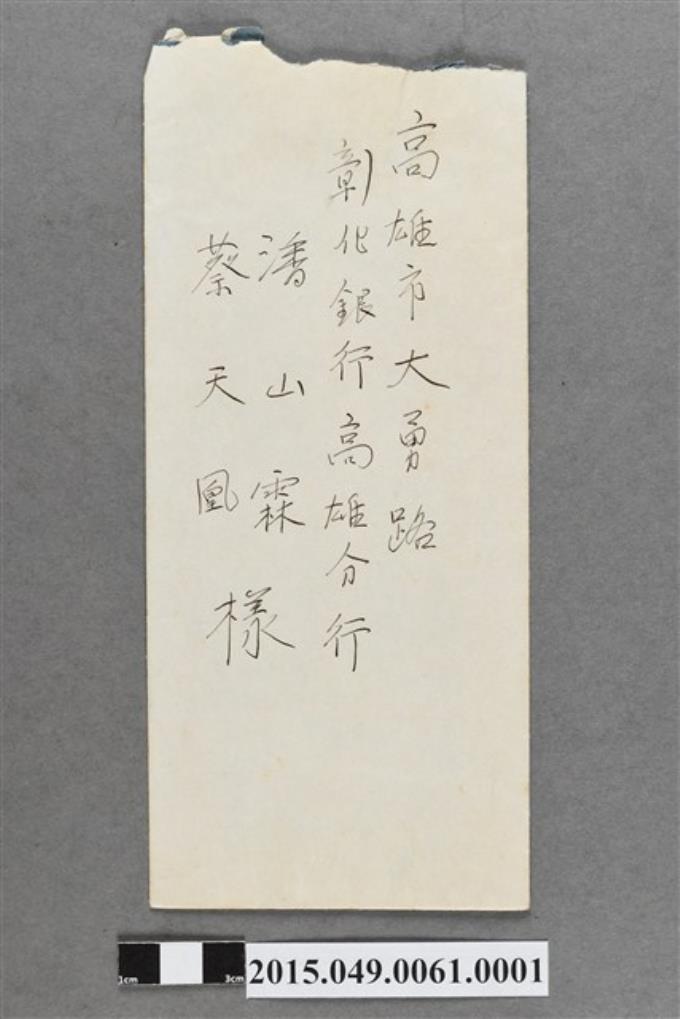 高雄市大勇路
彰化銀行高雄分行
潘山霖
蔡天凰
樣
1cm
3cm
2015.049.0061.0001